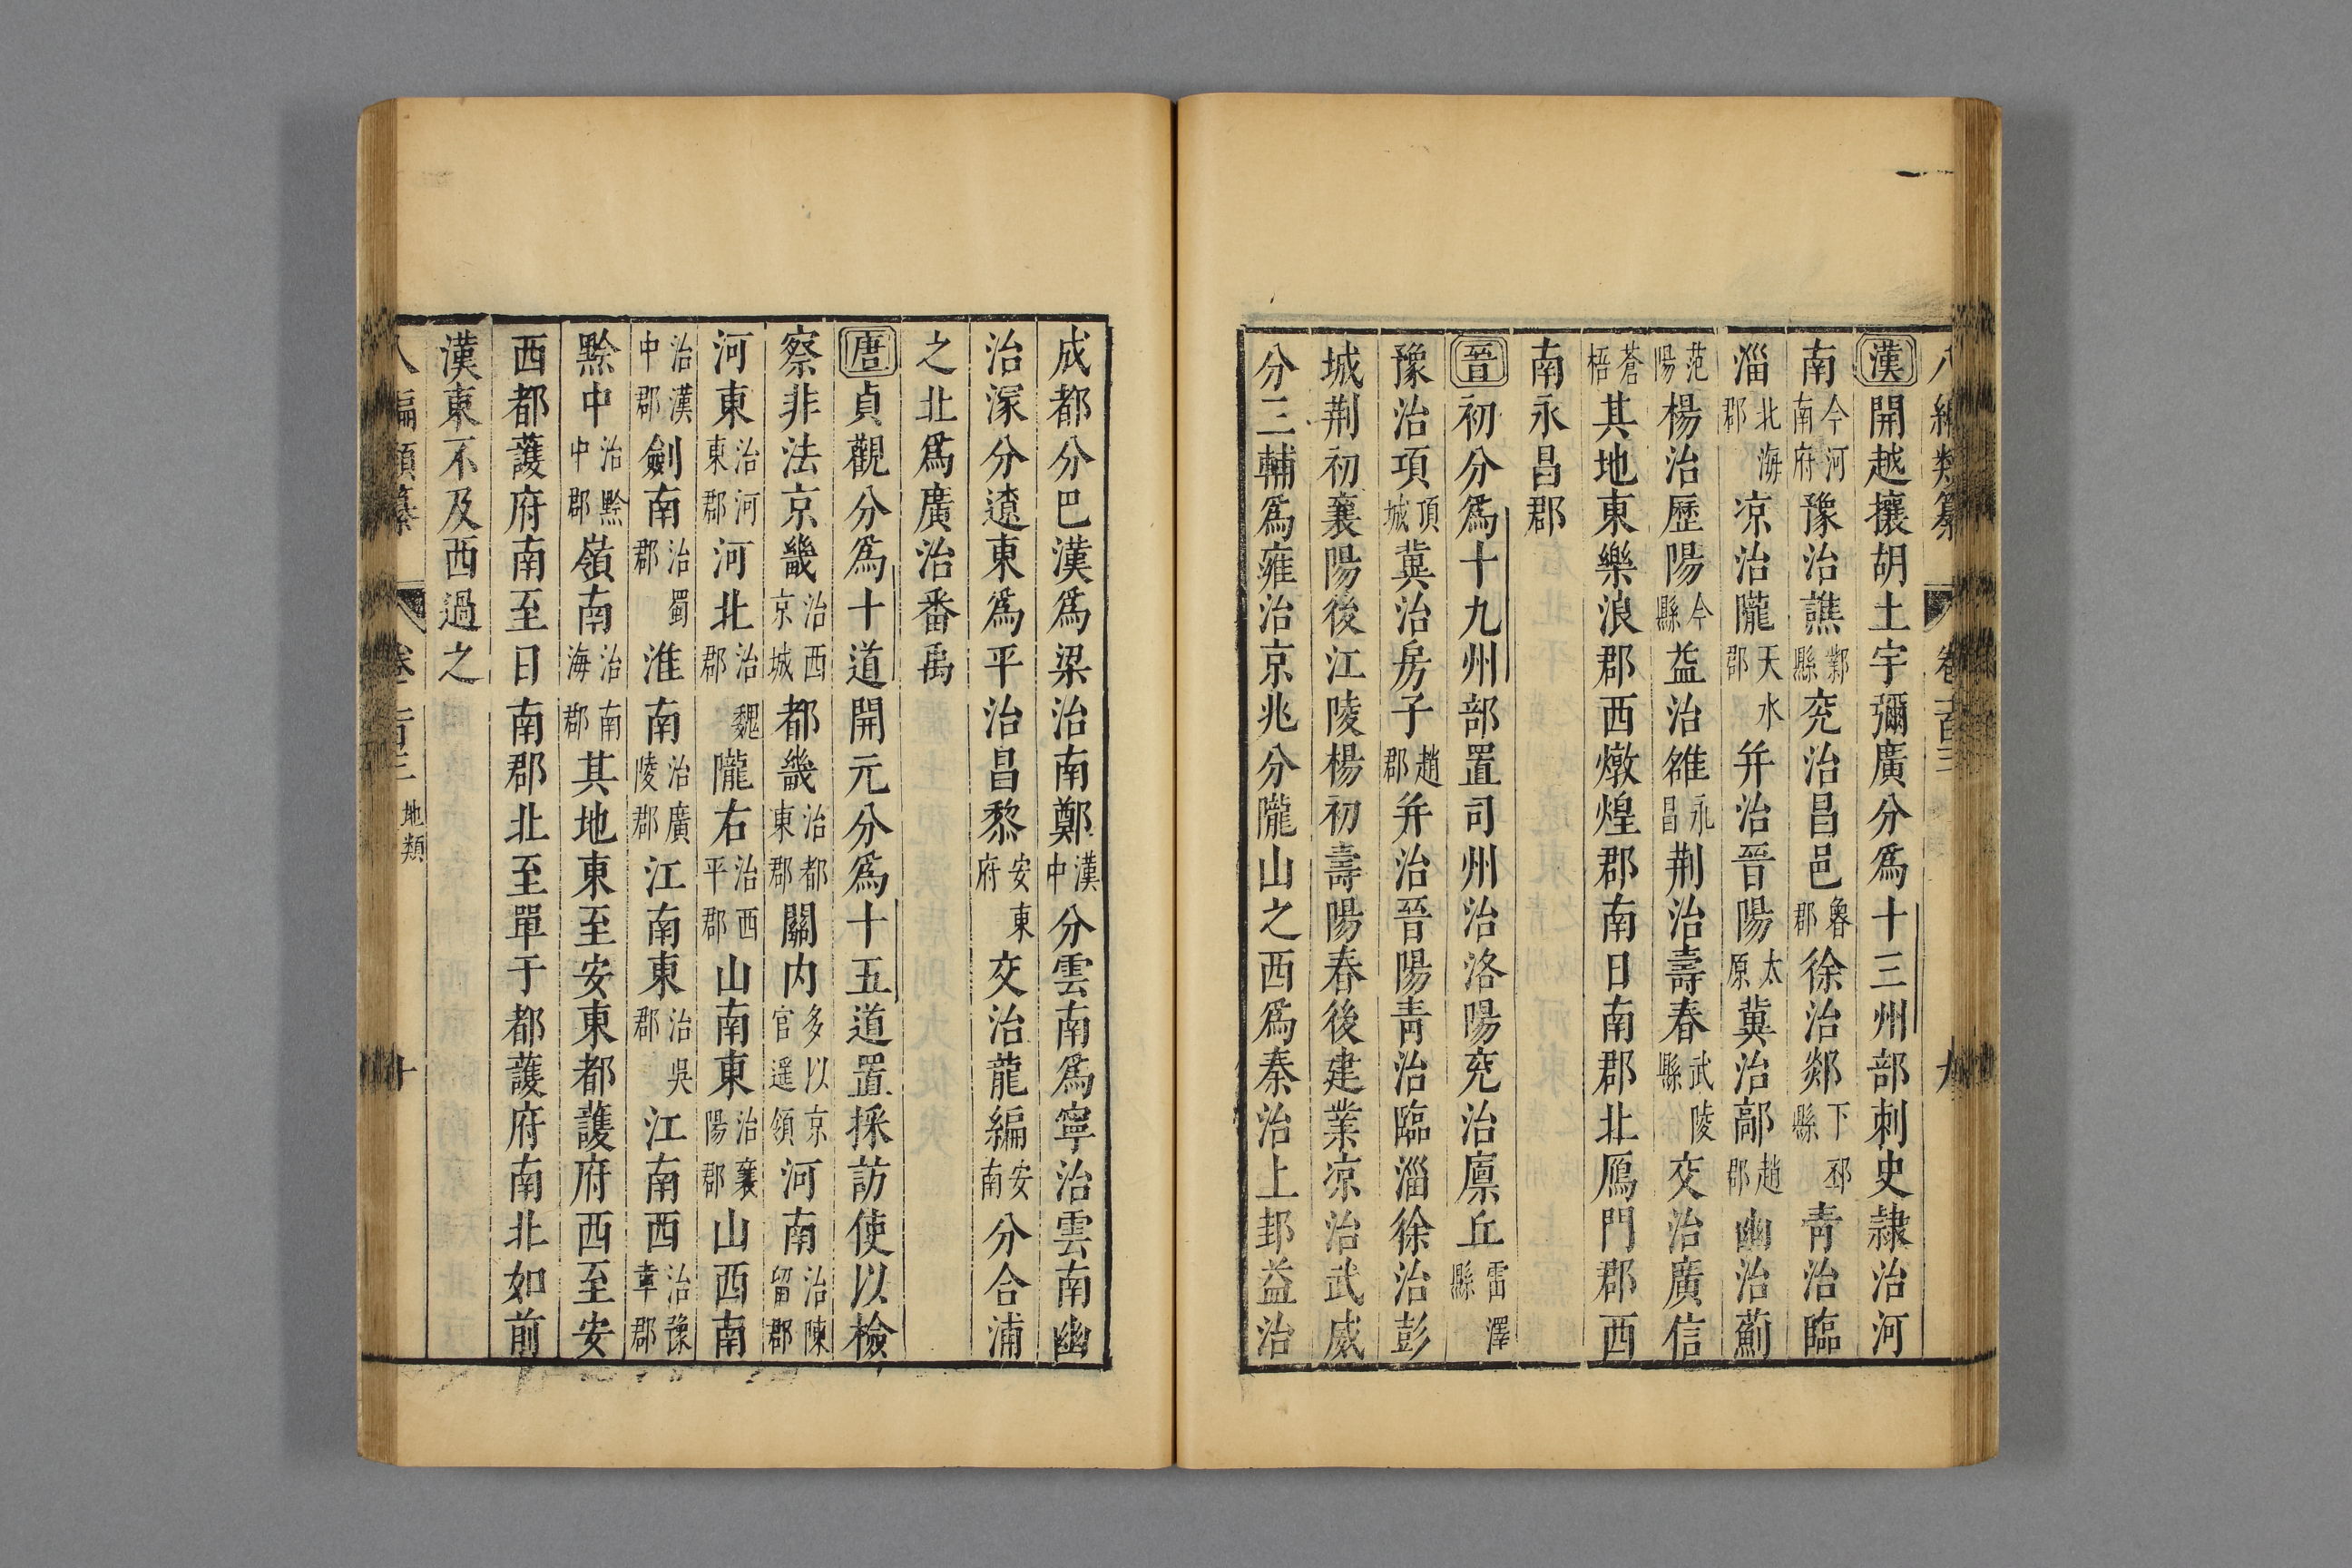 八編類纂 卷一百三 九
漢開越攘胡土宇彌廣分爲十三州部刺史隸治河
南今河南府豫治譙鄴縣兖治昌邑魯郡徐治郯下邳縣青治臨
淄北海郡凉治隴天水郡幷治晉陽太原冀治鄗趙郡幽治薊
范陽楊治歷陽今縣益治雒永昌荆治壽春武陵縣交治廣信
蒼梧其地東樂浪郡西燉煌郡南日南郡北鴈門郡西
南永昌郡
晉初分爲十九州部置司州治洛陽兖治廩丘雷澤縣
豫治項項城冀治房子趙郡幷治晉陽青治臨淄徐治彭
城荆初襄陽後江陵楊初壽陽春後建業凉治武威
分三輔爲雍治京兆分隴山之西爲秦治上邽益治
成都分巴漢爲梁治南鄭漢中分雲南爲寧治雲南幽
治涿分遼東爲平治昌黎安東府交治龍編安南分合浦
之北爲廣治番禹
唐貞觀分爲十道開元分爲十五道置採訪使以檢
察非法京畿治西京城都畿治都東郡關内多以京官遥領河南治陳留郡
河東治河東郡河北治魏郡隴右治西平郡山南東治襄陽郡山西南
治漢中郡劍南治蜀郡淮南治廣陵郡江南東治吳郡江南西治豫章郡
黔中治黔中郡嶺南治南海郡其地東至安東都護府西至安
西都護府南至日南郡北至單于都護府南北如前
漢東不及西過之
八編類纂 卷一百三 地類 十